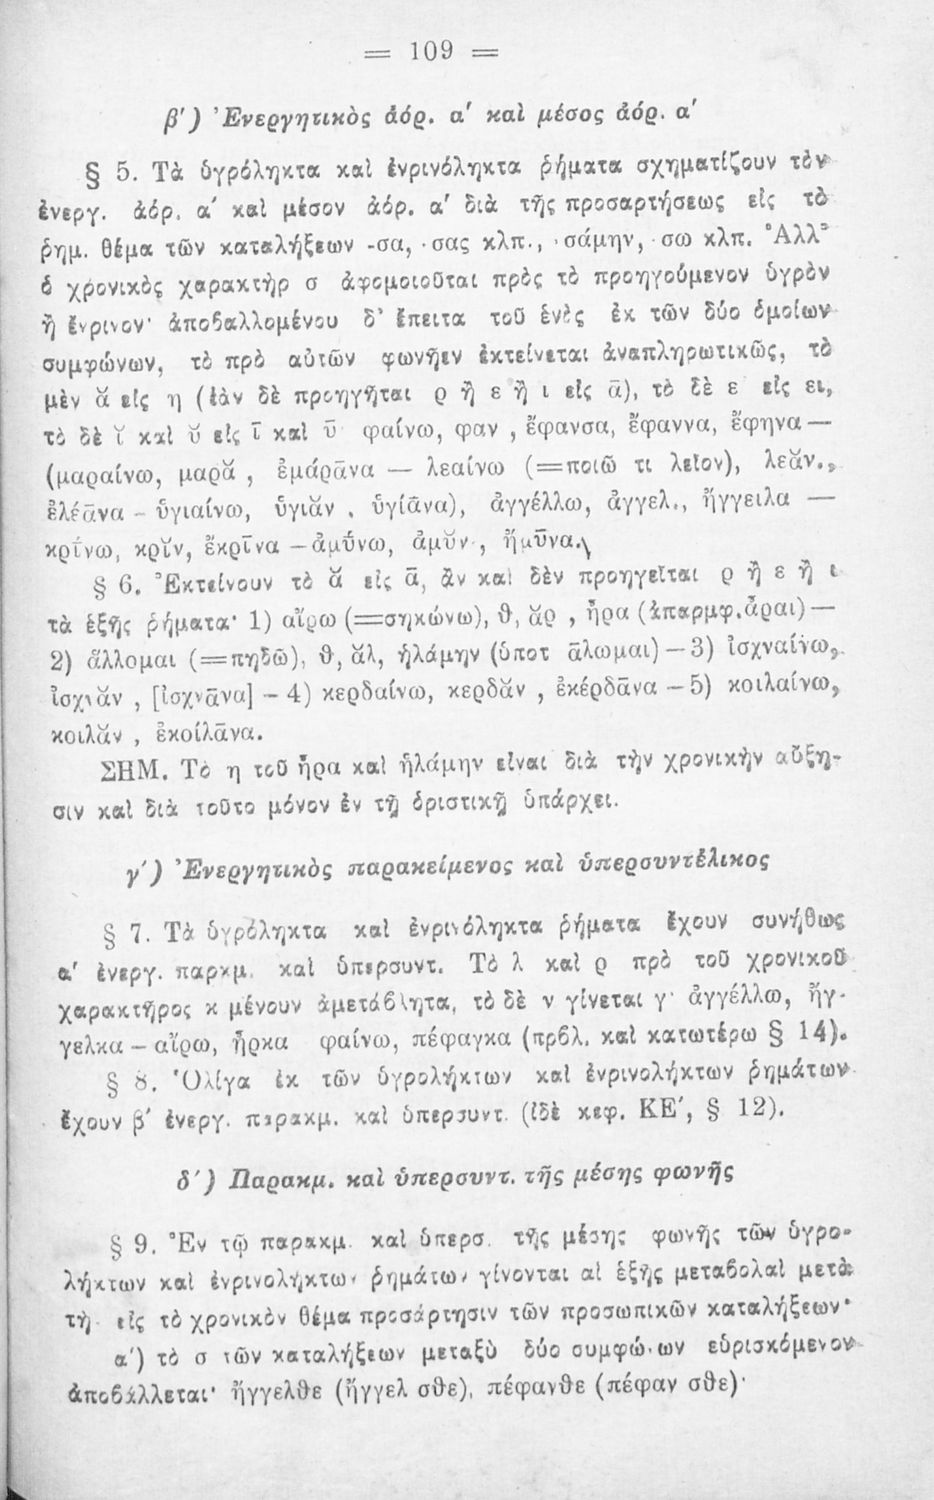 = 109 =
β') Ἐνεργητικὸς ἀόρ. α' καὶ μέσος ἀόρ. α'
§ 5. Τὰ ὑγρόληκτα καὶ ἐνρινόληκτα ῥήματα σχηματίζουν τὸν
ἐνεργ. ἀόρ. α' καὶ μέσον ἀόρ. α' διὰ τῆς προσαρτήσεως εἰς τὸ
ῥημ. θέμα τῶν καταλήξεων -σα, -σας κλπ., -σάμην, -σω κλπ. Ἀλλ'
ὁ χρονικὸς χαρακτὴρ σ ἀφομοιοῦται πρὸς τὸ προηγούμενον ὑγρὸν
ἢ ἔνρινον· ἀποβαλλομένου δ' ἔπειτα τοῦ ἑνὸς ἐκ τῶν δύο ὁμοίων
συμφώνων, τὸ πρὸ αὐτῶν φωνῆεν ἐκτείνεται ἀναπληρωτικῶς, τὸ
μὲν ᾰ εἰς η (ἐὰν δὲ προηγῆται ρ ἢ ε ἢ ι εἰς ᾱ), τὸ δὲ ε εἰς ει,
τὸ δὲ ῐ καὶ ῠ εἰς ῑ καὶ ῡ· φαίνω, φαν , ἔφανσα, ἔφαννα, ἔφηνα —
(μαραίνω, μαρᾰ , ἐμάρᾱνα — λεαίνω (=ποιῶ τι λεῖον), λεᾰν.,
ἐλέᾱνα - ὑγιαίνω, ὑγιᾰν , ὑγίᾱνα), ἀγγέλλω, ἀγγελ., ἤγγειλα —
κρίνω, κρῐν, ἔκρῑνα — ἀμύνω, ἀμῠν-, ἤμῡνα.
§ 6. Ἐκτείνουν τὸ ᾰ εἰς ᾱ, ἂν καὶ δὲν προηγεῖται ρ ἢ ε ἢ ι
τὰ ἑξῆς ῥήματα· 1) αἴρω (=σηκώνω), θ, ᾰρ , ἦρα (ἀπαρμφ. ἆραι) —
2) ἅλλομαι (=πηδῶ), θ, ᾰλ, ἡλάμην (ὑποτ ᾱλωμαι) — 3) ἰσχναίνω,
ἰσχνᾰν , [ἰσχνᾱνα] - 4) κερδαίνω, κερδᾰν , ἐκέρδᾱνα — 5) κοιλαίνω,
κοιλᾰν , ἐκοίλᾱνα.
ΣΗΜ. Τὸ η τοῦ ἦρα καὶ ἡλάμην εἶναι διὰ τὴν χρονικὴν αὔξη-
σιν καὶ διὰ τοῦτο μόνον ἐν τῇ ὁριστικῇ ὑπάρχει.
γ') Ἐνεργητικὸς παρακείμενος καὶ ὑπερσυντέλικος
§ 7. Τὰ ὑγρόληκτα καὶ ἐνρινόληκτα ῥήματα ἔχουν συνήθως
α' ἐνεργ. παρκμ. καὶ ὑπερσυντ. Τὸ λ καὶ ρ πρὸ τοῦ χρονικοῦ
χαρακτῆρος κ μένουν ἀμετάβλητα, τὸ δὲ ν γίνεται γ· ἀγγέλλω, ἤγ-
γελκα — αἴρω, ἦρκα φαίνω, πέφαγκα (πρβλ. καὶ κατωτέρω § 14).
§ 8. Ὀλίγα ἐκ τῶν ὑγρολήκτων καὶ ἐνρινολήκτων ῥημάτων
ἔχουν β' ἐνεργ. παρακμ. καὶ ὑπερσυντ. (ἰδὲ κεφ. ΚΕ', § 12).
δ') Παρακμ. καὶ ὑπερσυντ. τῆς μέσης φωνῆς
§ 9. Ἐν τῷ παρακμ. καὶ ὑπερσ. τῆς μέσης φωνῆς τῶν ὑγρο-
λήκτων καὶ ἐνρινολήκτων ῥημάτων γίνονται αἱ ἑξῆς μεταβολαὶ μετὰ
τὴν εἰς τὸ χρονικὸν θέμα προσάρτησιν τῶν προσωπικῶν καταλήξεων·
α') τὸ σ τῶν καταλήξεων μεταξὺ δύο συμφώνων εὑρισκόμενον
ἀποβάλλεται· ἤγγελθε (ἤγγελ σθε), πέφανθε (πέφαν σθε)·